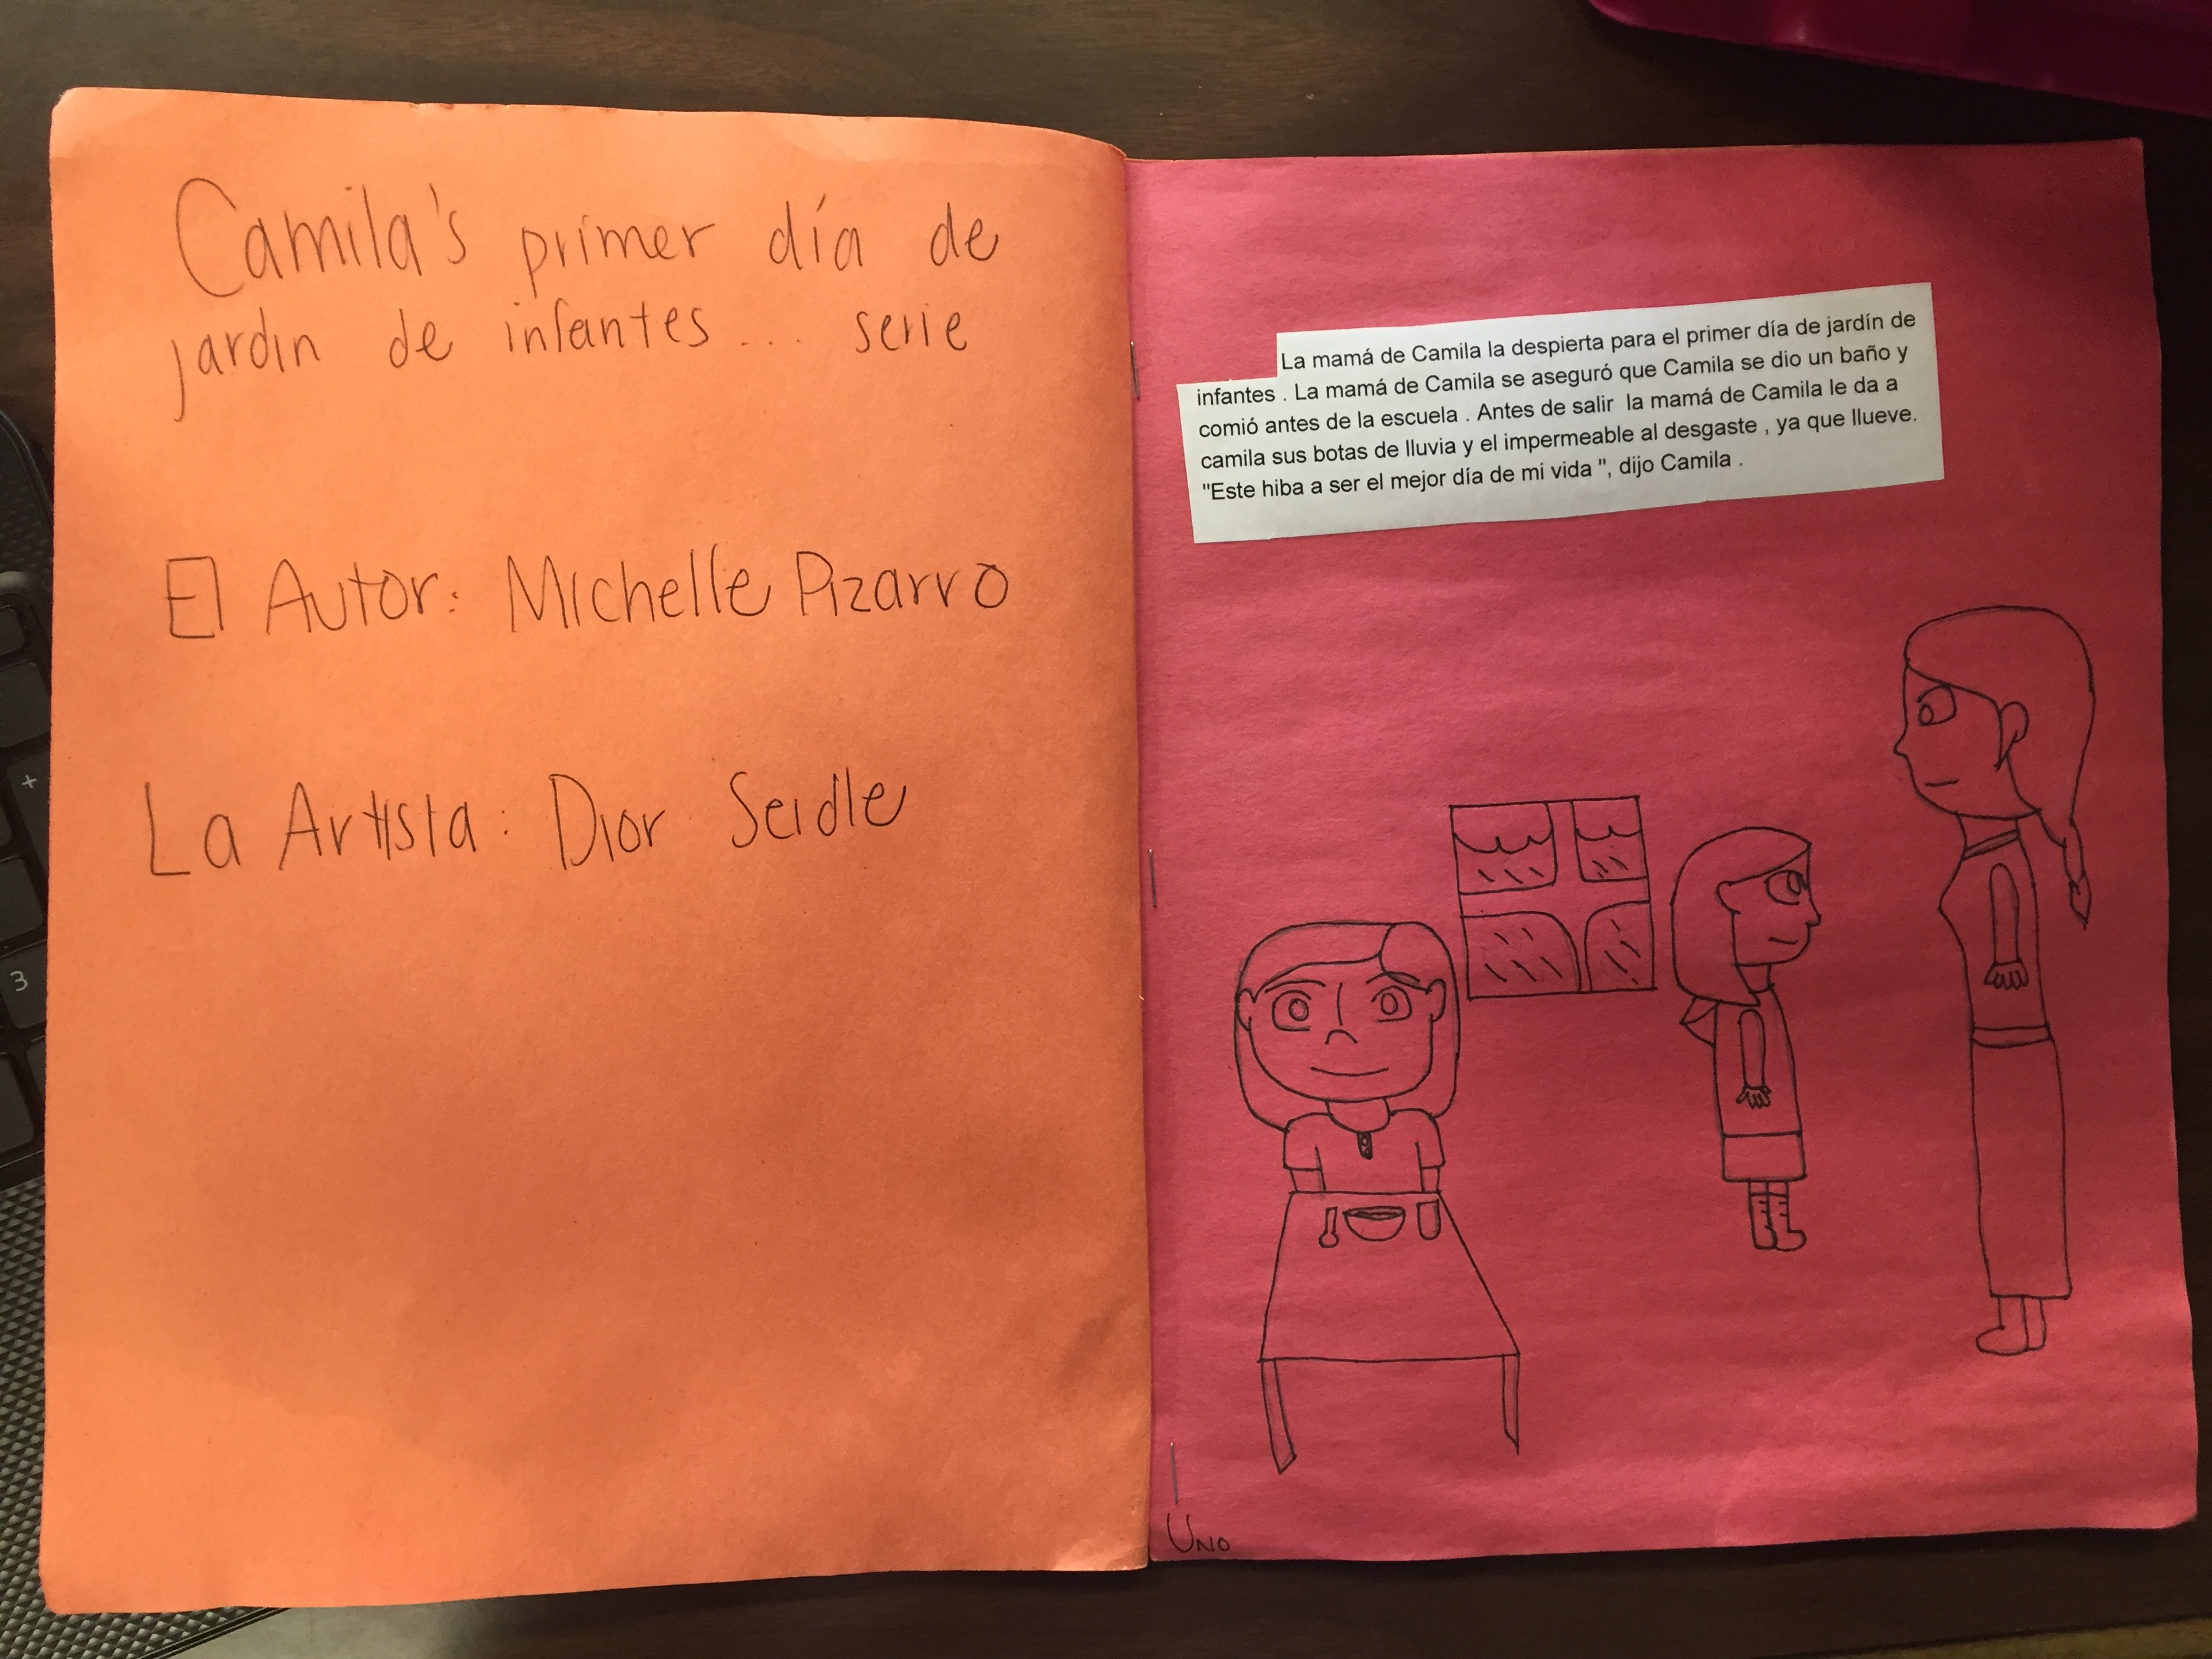 Camila's primer día de
jardin de infantes... serie
El Autor: Michelle Pizarro
La Artista: Dior Seidle
La mamá de Camila la despierta para el primer día de jardín de
infantes . La mamá de Camila se aseguró que Camila se dio un baño y
comió antes de la escuela . Antes de salir la mamá de Camila le da a
camila sus botas de lluvia y el impermeable al desgaste , ya que llueve.
"Este hiba a ser el mejor día de mi vida ", dijo Camila .
Uno
+
3